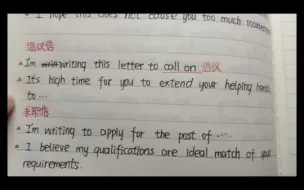 I hope this does not cause you too much inconvenience
倡议信
I'm writing this letter to call on 倡议
It's high time for you to extend your helping hands
to ...
求职信
I'm writing to apply for the post of ....
I believe my qualifications are ideal match of your
requirements.